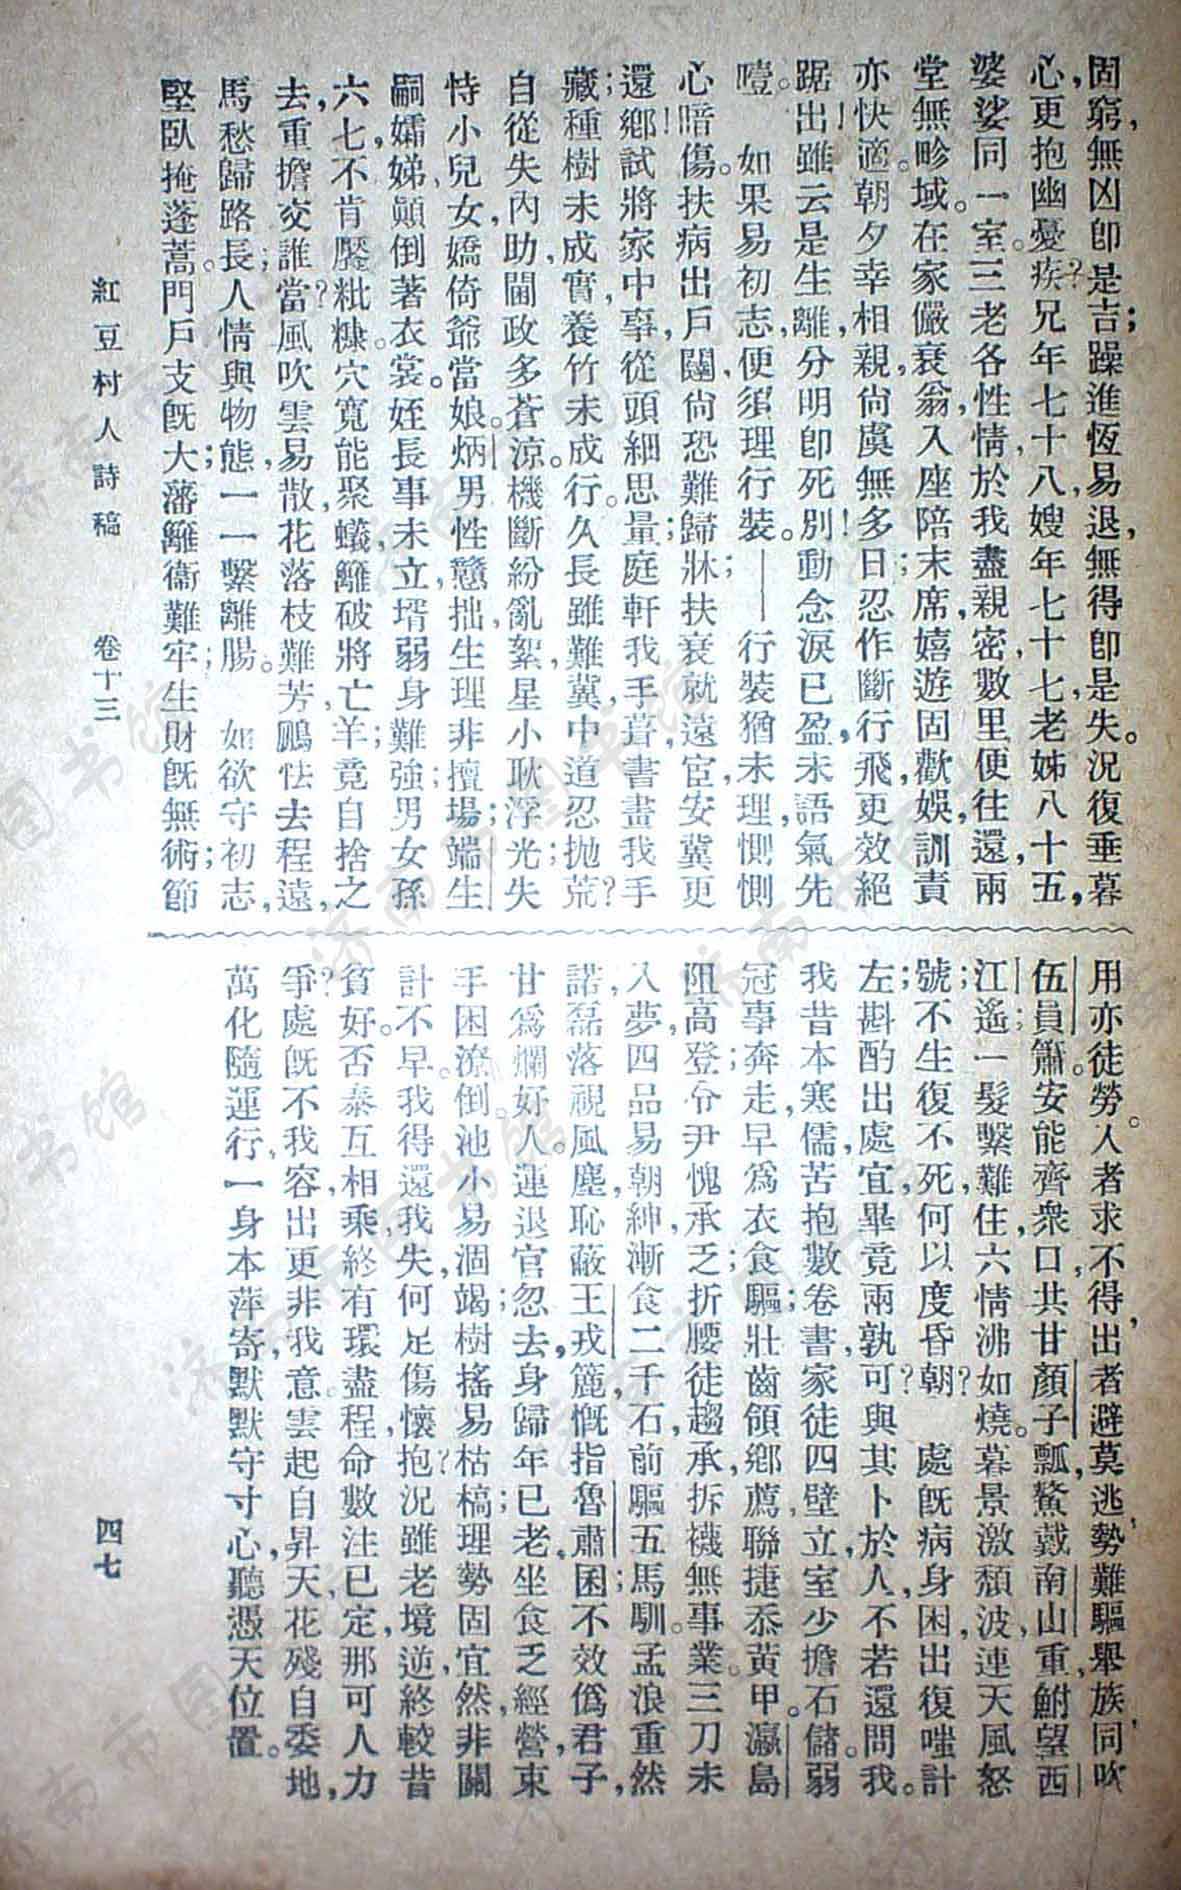 固窮無凶卽是吉；躁進恆易退，無得卽是失。況復垂暮
心，更抱幽憂疾？兄年七十八，嫂年七十七，老姊八十五，
婆娑同一室。三老各性情，於我盡親密，數里便往還，兩
堂無畛域。在家儼衰翁，入座陪末席，嬉遊固歡娛，訓責
亦快適。朝夕幸相親，尚虞無多日；忍作斷行飛，更效絕
踞出！雖云是生離，分明卽死別！動念淚已盈，未語氣先
噎。　如果易初志，便須理行裝。——行裝猶未理，惻惻
心暗傷。扶病出戶闥，尚恐難歸牀；扶衰就遠宦，安冀更
還鄉！試將家中事，從頭細思量。庭軒我手葺，書畫我手
藏；種樹未成實，養竹未成行。久長雖難冀，中道忍拋荒？
自從失內助，閫政多蒼涼。機斷紛亂絮，星小耿浮光。失
恃小兒女，嬌倚爺當娘。炳男性戇拙，生理非擅場；端生
嗣孀娣，顛倒著衣裳。姪長事未立，壻弱身難強；男女孫
六七，不肯饜粃糠。穴寬能聚蟻，籬破將亡羊；竟自捨之
去，重擔交誰當？風吹雲易散，花落枝難芳。鵩怯去程遠，
馬愁歸路長；人情與物態，一一繫離腸。　如欲守初志，
堅臥掩蓬蒿。門戶支旣大，藩籬衞難牢；生財旣無術；節
用亦徒勞。人者求不得，出者避莫逃，勢難驅舉族，同吹
伍員簫。安能齊衆口，共甘顏子瓢，鰲戴南山重，鮒望西
江遙；一髮繫難住，六情沸如燒。暮景激頹波，連天風怒
號；不生復不死，何以度昏朝？　處旣病身困，出復嗤計
左；斟酌出處宜，畢竟兩孰可？與其卜於人，不若還問我。
我昔本寒儒，苦抱數卷書；家徒四壁立，室少擔石儲。弱
冠事奔走，早爲衣食驅；壯齒領鄉薦，聯捷忝黃甲。瀛島
阻高登，令尹愧承乏；折腰徒趨承，拆襪無事業。三刀未
入夢，四品易朝紳；漸食二千石，前驅五馬馴。孟浪重然
諾，磊落視風塵，恥蔽王戎簏，慨指魯肅囷；不效僞君子，
甘爲爛好人。運退官忽去，身歸年已老；坐食乏經營，束
手困潦倒。池小易涸竭，樹搖易枯槁；理勢固宜然，非關
計不早。我得還我失，何足傷懷抱？況雖老境逆，終較昔
貧好。否泰互相乘，終有環盡程，命數注已定，那可人力
爭？處旣不我容，出更非我意。雲起自昇天，花殘自委地，
萬化隨運行，一身本萍寄，默默守寸心，聽憑天位置。
紅豆村人詩稿　卷十三　四七